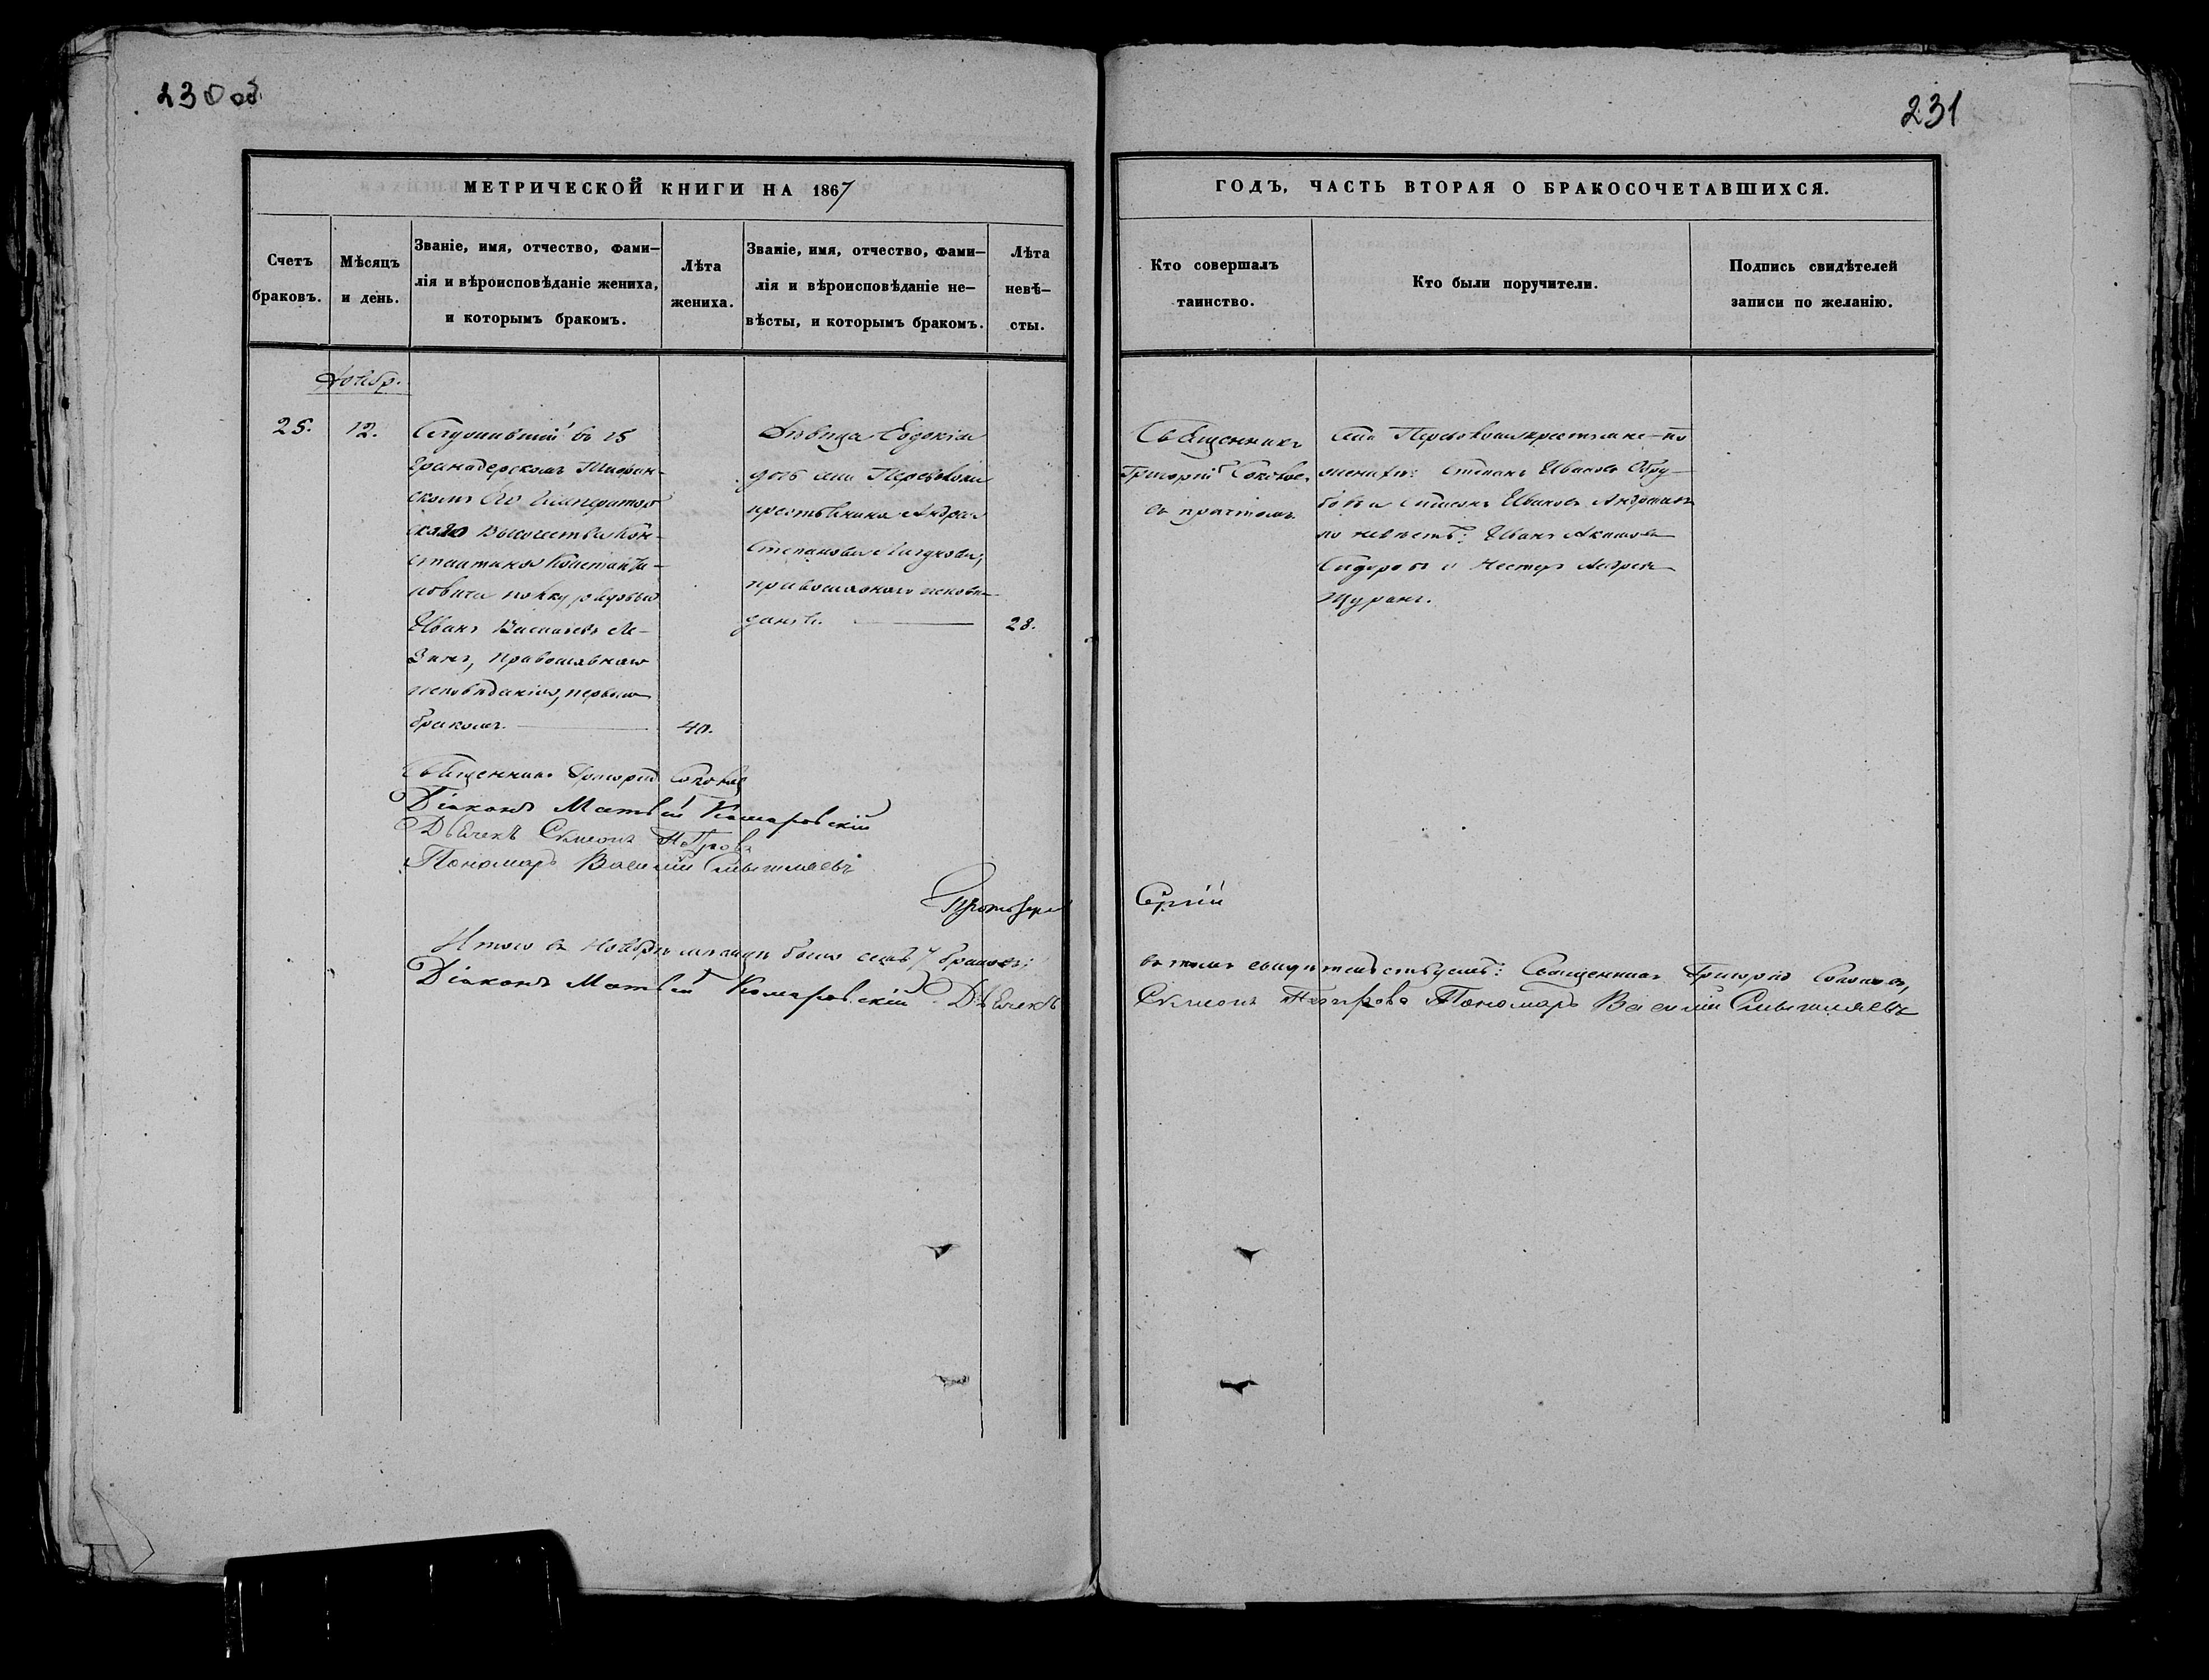 230 об.
231
МЕТРИЧЕСКОЙ КНИГИ НА 1867
ГОДЪ, ЧАСТЬ ВТОРАЯ О БРАКОСОЧЕТАВШИХСЯ.
Счетъ браковъ.
Мѣсяцъ и день.
Званіе, имя, отчество, фами-
лія и вѣроисповѣданіе жениха,
и которымъ бракомъ.
Лѣта жениха.
Званіе, имя, отчество, фами-
лія и вѣроисповѣданіе не-
вѣсты, и которымъ бракомъ.
Лѣта
невѣ-
сты.
Кто совершалъ
таинство.
Кто были поручители.
Подпись свидѣтелей
записи по желанію.
Ноябр.
25.
12.
Служившій въ 15
гренадерскомъ Тифлис-
скомъ Его Император
скаго Высочества Кон-
стантина Константи-
новича полку рядовый
Иванъ Васильевъ
православнаго
исповѣданія, первымъ
бракомъ
40.
Дѣвица Евдокія
дочь села Перевоза
крестьянина Андрея
Степанова
православнаго исповѣ-
данія.
28.
Священникъ
Григорій Соколовъ
съ причтомъ.
Села крестьяне по
женихѣ: Степанъ Ивановъ
и Симеонъ Ивановъ
по невѣстѣ: Иванъ Акимовъ
Сидоровъ и Нестеръ
Священникъ Григорій Соколовъ
Діаконъ Матвѣй Комаровскій
Дьячекъ Симеонъ Петровъ
Пономарь Василій Смышляевъ
Протоіерей Сергій
Итого въ Ноябрѣ мѣсяцѣ было семь 7 браковъ;
въ томъ свидѣтельствуемъ: Священникъ Григорій Соколовъ,
Діаконъ Матвѣй Комаровскій Дьячекъ
Симеонъ Петровъ Пономарь Василій Смышляевъ